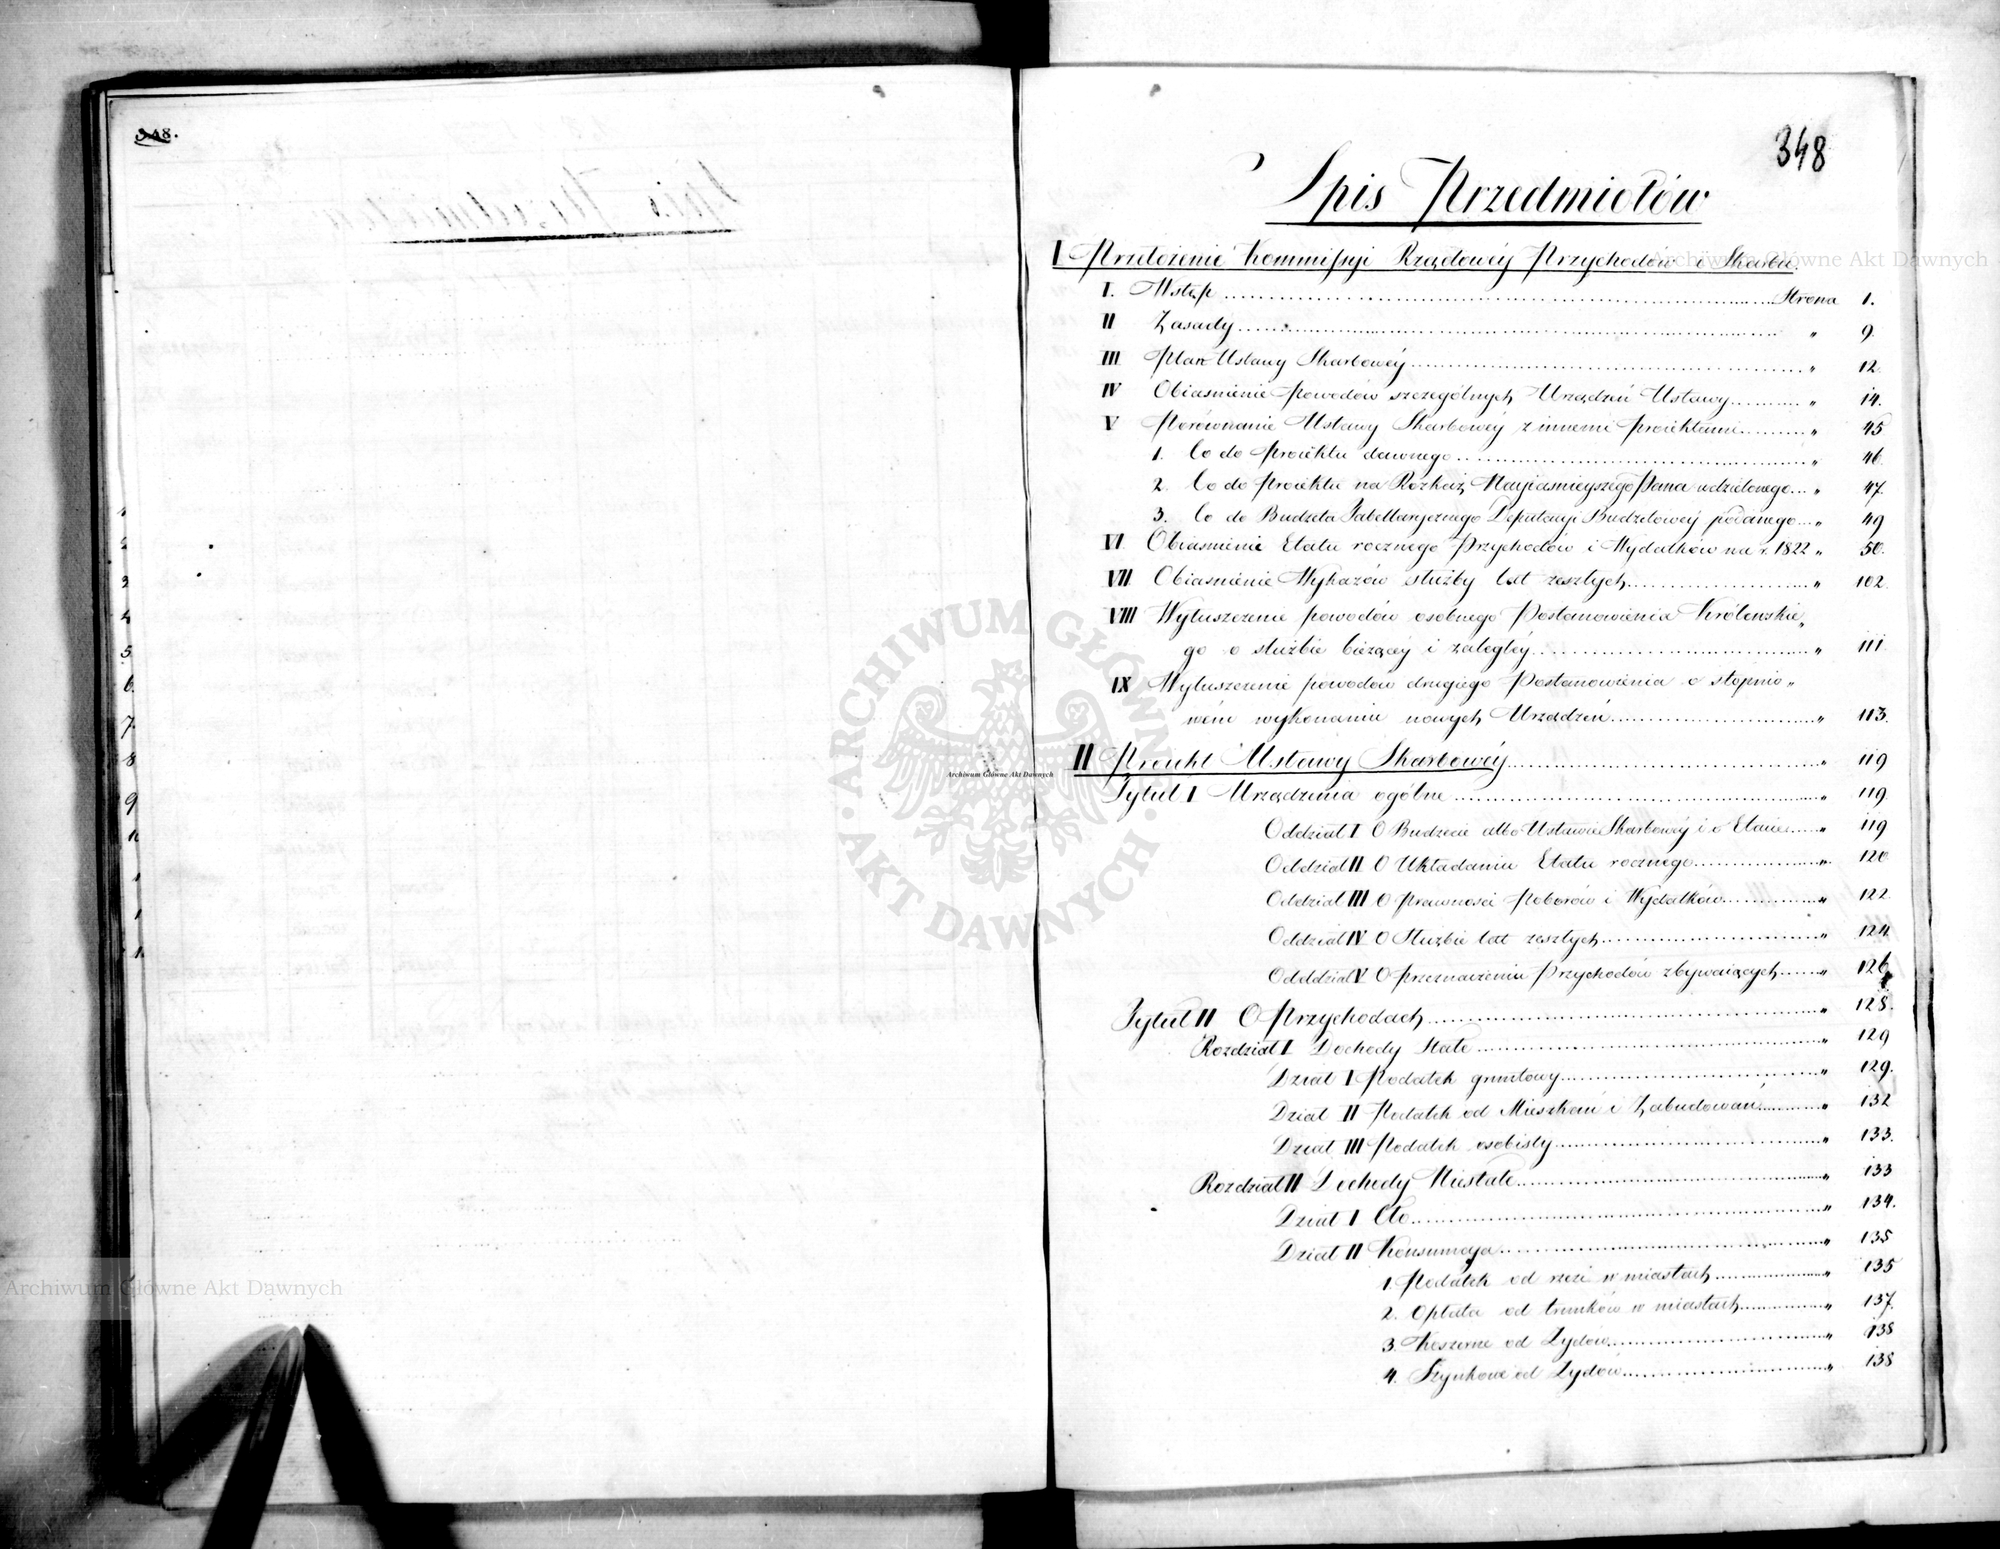 348.
348
Spis Przedmiotów
I Przełożenie Kommissyi Rządowéy Przychodów i Skarbu.
I. Wstęp Strona 1.
II Zasady „ 9.
III Plan Ustawy Skarbowéy „ 12.
IV Obiaśnienie powodów szczególnych Urządzeń Ustawy „ 14.
V Porównanie Ustawy Skarbowéy z innemi proiektami „ 45
1. Co do Proiektu dawnego „ 46.
2. Co do Proiektu na Rozkaz Nayiaśnieyszego Pana udzielonego „ 47.
3. Co do Budżetu Tabellarycznego Deputacyi Budżetowéy podanego „ 49
VI Obiaśnienie Etatu rocznego Przychodów i Wydatków na r. 1822 „ 50.
VII Obiaśnienie Wykazów służby lat zeszłych „ 102.
VIII Wyłuszczenie powodów osobnego Postanowienia Królewskie„
go o służbie bieżącéy i zaległéy „ 111.
IX Wyłuszczenie powodów drugiego Postanowienia o stopnio„
wém wykonaniu nowych Urządzeń „ 113.
II Proiekt Ustawy Skarbowéy „ 119
Tytuł I Urządzenia ogólne „ 119.
Oddział I O Budżecie albo Ustawie Skarbowéy i o Etacie „ 119
Oddział II O Układaniu Etatu rocznego „ 120
Oddział III O Prawności Poborów i Wydatków „ 122
Oddział IV O Służbie lat zeszłych „ 124.
Odddział V O przeznaczeniu Przychodów zbywaiących „ 126
Tytuł II O Przychodach „ 128.
Rozdział I Dochody Stałe „ 129
Dział I Podatek gruntowy „ 129.
Dział II Podatek od Mieszkań i Zabudowań „ 132
Dział III Podatek osobisty „ 133.
Rozdział II Dochody Niestałe „ 133
Dział I Cło „ 134.
Dział II Konsumcyja „ 135
1. Podatek od rzezi w miastach „ 135
2. Opłata od trunków w miastach „ 137.
3. Koszerne od Żydów „ 138
4. Szynkowe od Żydów „ 138
Archiwum Główne Akt Dawnych
Archiwum Główne Akt Dawnych
Archiwum Główne Akt Dawnych
ARCHIWUM GŁÓWNE AKT DAWNYCH